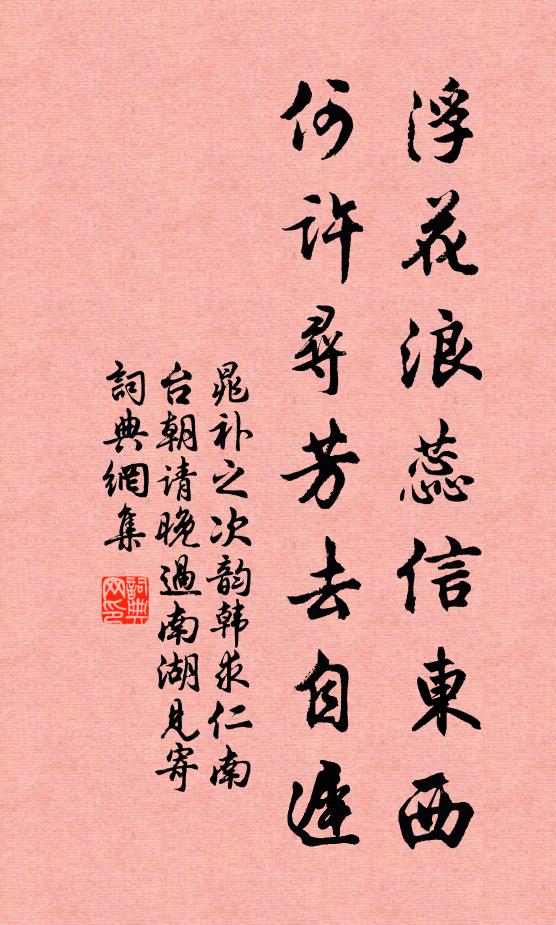 浮花浪蕊信東西
何許尋芳去自遲
晁补之次韵韩求仁南
台朝请晚過南湖見寄
詞典網集
詞典網印